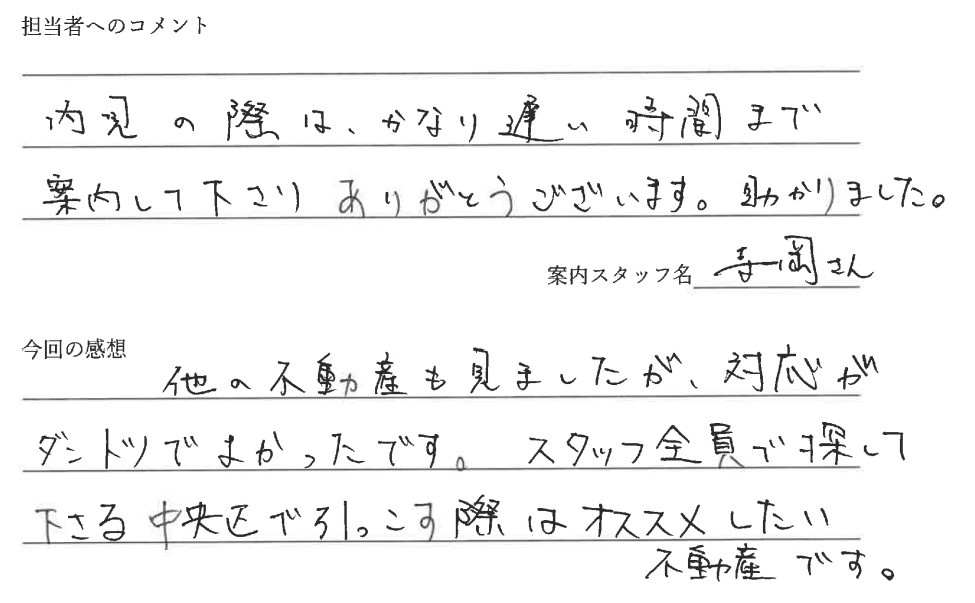 担当者へのコメント
内見の際は、かなり遅い時間まで
案内して下さり ありがとうございます。助かりました。
案内スタッフ名 寺岡さん
今回の感想
他の不動産も見ましたが、対応が
ダントツでよかったです。 スタッフ全員で探して
下さる 中央区で引っこす際はオススメしたい
不動産です。